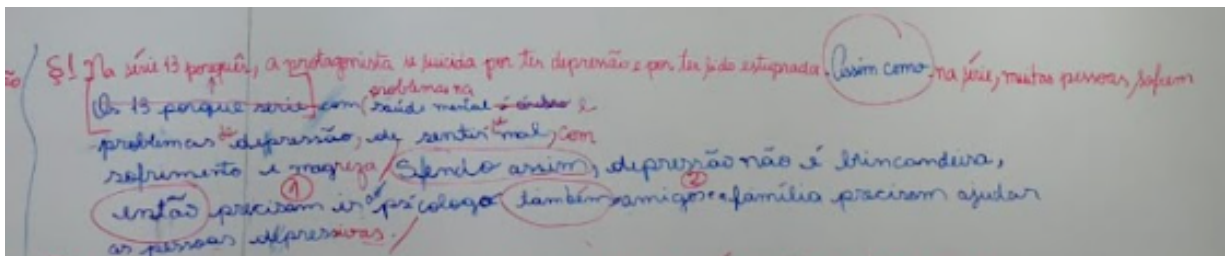 ão
§1 Na série 13 porquês, a protagonista se suicida por ter depressão e por ter sido estuprada. Assim como na série, muitas pessoas sofrem
problemas na
Os 13 porque serie, com saúde mental e
problemas de depressão, de sentir mal, com
sofrimento e magreza / Sendo assim, depressão não é brincandeira,
① ②
então precisam ir psícologo também amigos e família precisam ajudar
as pessoas depressivas. /